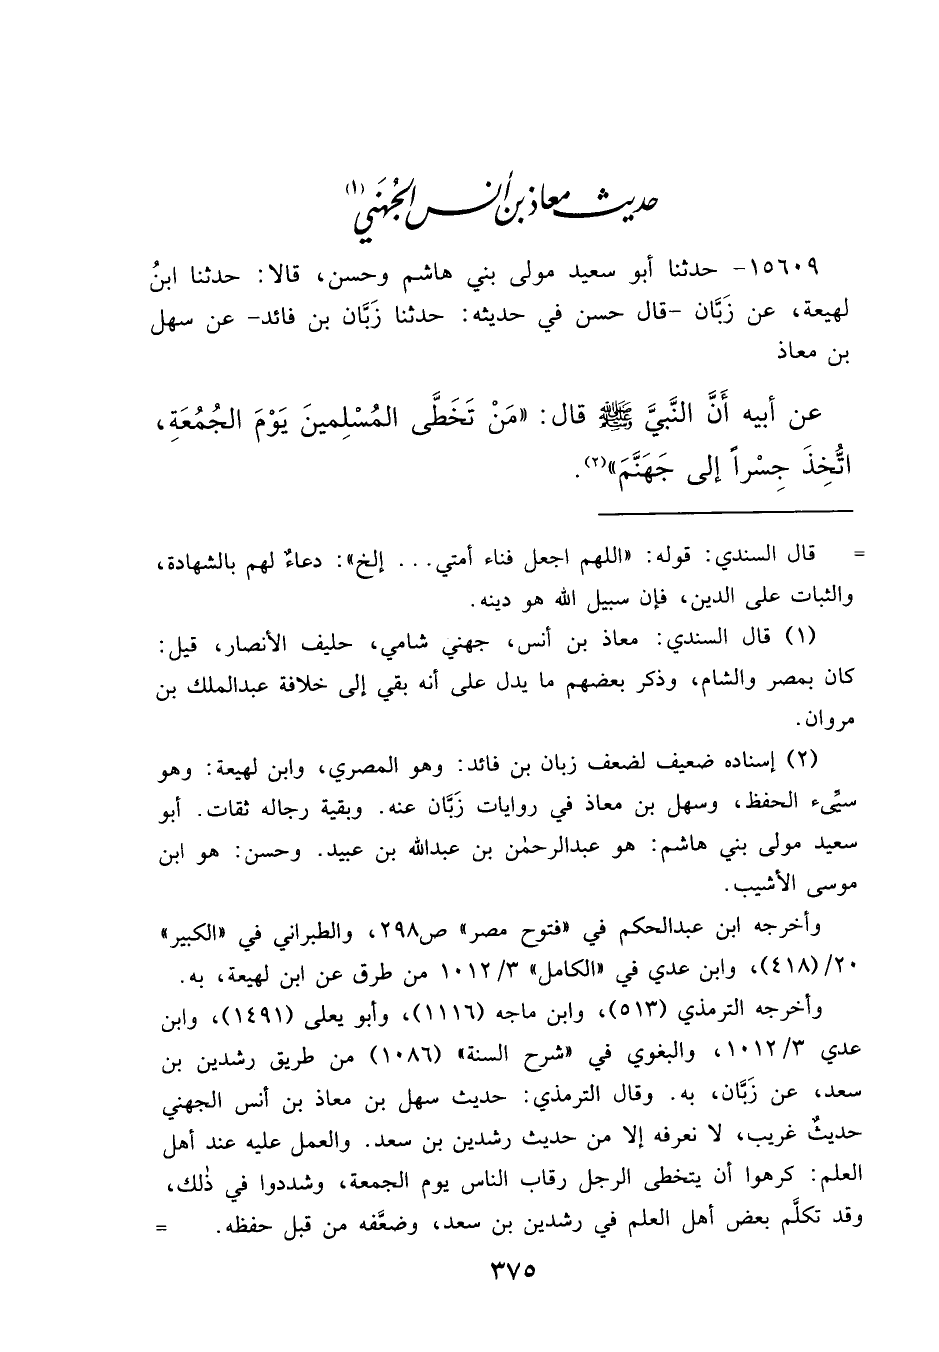 حديث معاذ بن أنس الجُهَني(١)
١٥٦٠٩- حدثنا أبو سعيد مولى بني هاشم وحسن، قالا: حدثنا ابنُ
لهيعة، عن زَبَّان -قال حسن في حديثه: حدثنا زَبَّان بن فائد- عن سهل
بن معاذ
عن أبيه أَنَّ النَّبيَّ ﷺ قال: «مَنْ تَخَطَّى المُسْلِمينَ يَوْمَ الجُمُعَةِ،
اتُّخِذَ جِسْراً إلى جَهَنَّمَ»(٢).
= قال السندي: قوله: «اللهم اجعل فناء أمتي... إلخ»: دعاءٌ لهم بالشهادة،
والثبات على الدين، فإن سبيل الله هو دينه.
(١) قال السندي: معاذ بن أنس، جهني شامي، حليف الأنصار، قيل:
كان بمصر والشام، وذكر بعضهم ما يدل على أنه بقي إلى خلافة عبدالملك بن
مروان.
(٢) إسناده ضعيف لضعف زبان بن فائد: وهو المصري، وابن لهيعة: وهو
سيِّىء الحفظ، وسهل بن معاذ في روايات زَبَّان عنه. وبقية رجاله ثقات. أبو
سعيد مولى بني هاشم: هو عبدالرحمٰن بن عبدالله بن عبيد. وحسن: هو ابن
موسى الأشيب.
وأخرجه ابن عبدالحكم في «فتوح مصر» ص٢٩٨، والطبراني في «الكبير»
٢٠/(٤١٨)، وابن عدي في «الكامل» ١٠١٢/٣ من طرق عن ابن لهيعة، به.
وأخرجه الترمذي (٥١٣)، وابن ماجه (١١١٦)، وأبو يعلى (١٤٩١)، وابن
عدي ١٠١٢/٣، والبغوي في «شرح السنة» (١٠٨٦) من طريق رشدين بن
سعد، عن زَبَّان، به. وقال الترمذي: حديث سهل بن معاذ بن أنس الجهني
حديثٌ غريب، لا نعرفه إلا من حديث رشدين بن سعد. والعمل عليه عند أهل
العلم: كرهوا أن يتخطى الرجل رقاب الناس يوم الجمعة، وشددوا في ذٰلك،
وقد تكلَّم بعض أهل العلم في رشدين بن سعد، وضعَّفه من قبل حفظه. =
٣٧٥